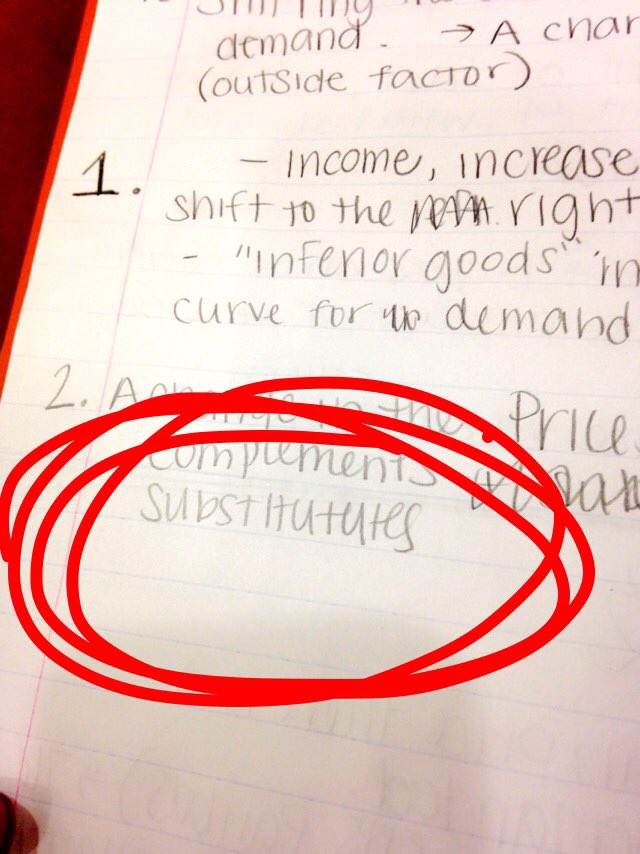 demand. → A char
(outside factor)
1. - income, increase
shift to the right
- "inferior goods" in
curve for demand
2. A change in the Price
complements
substitututes